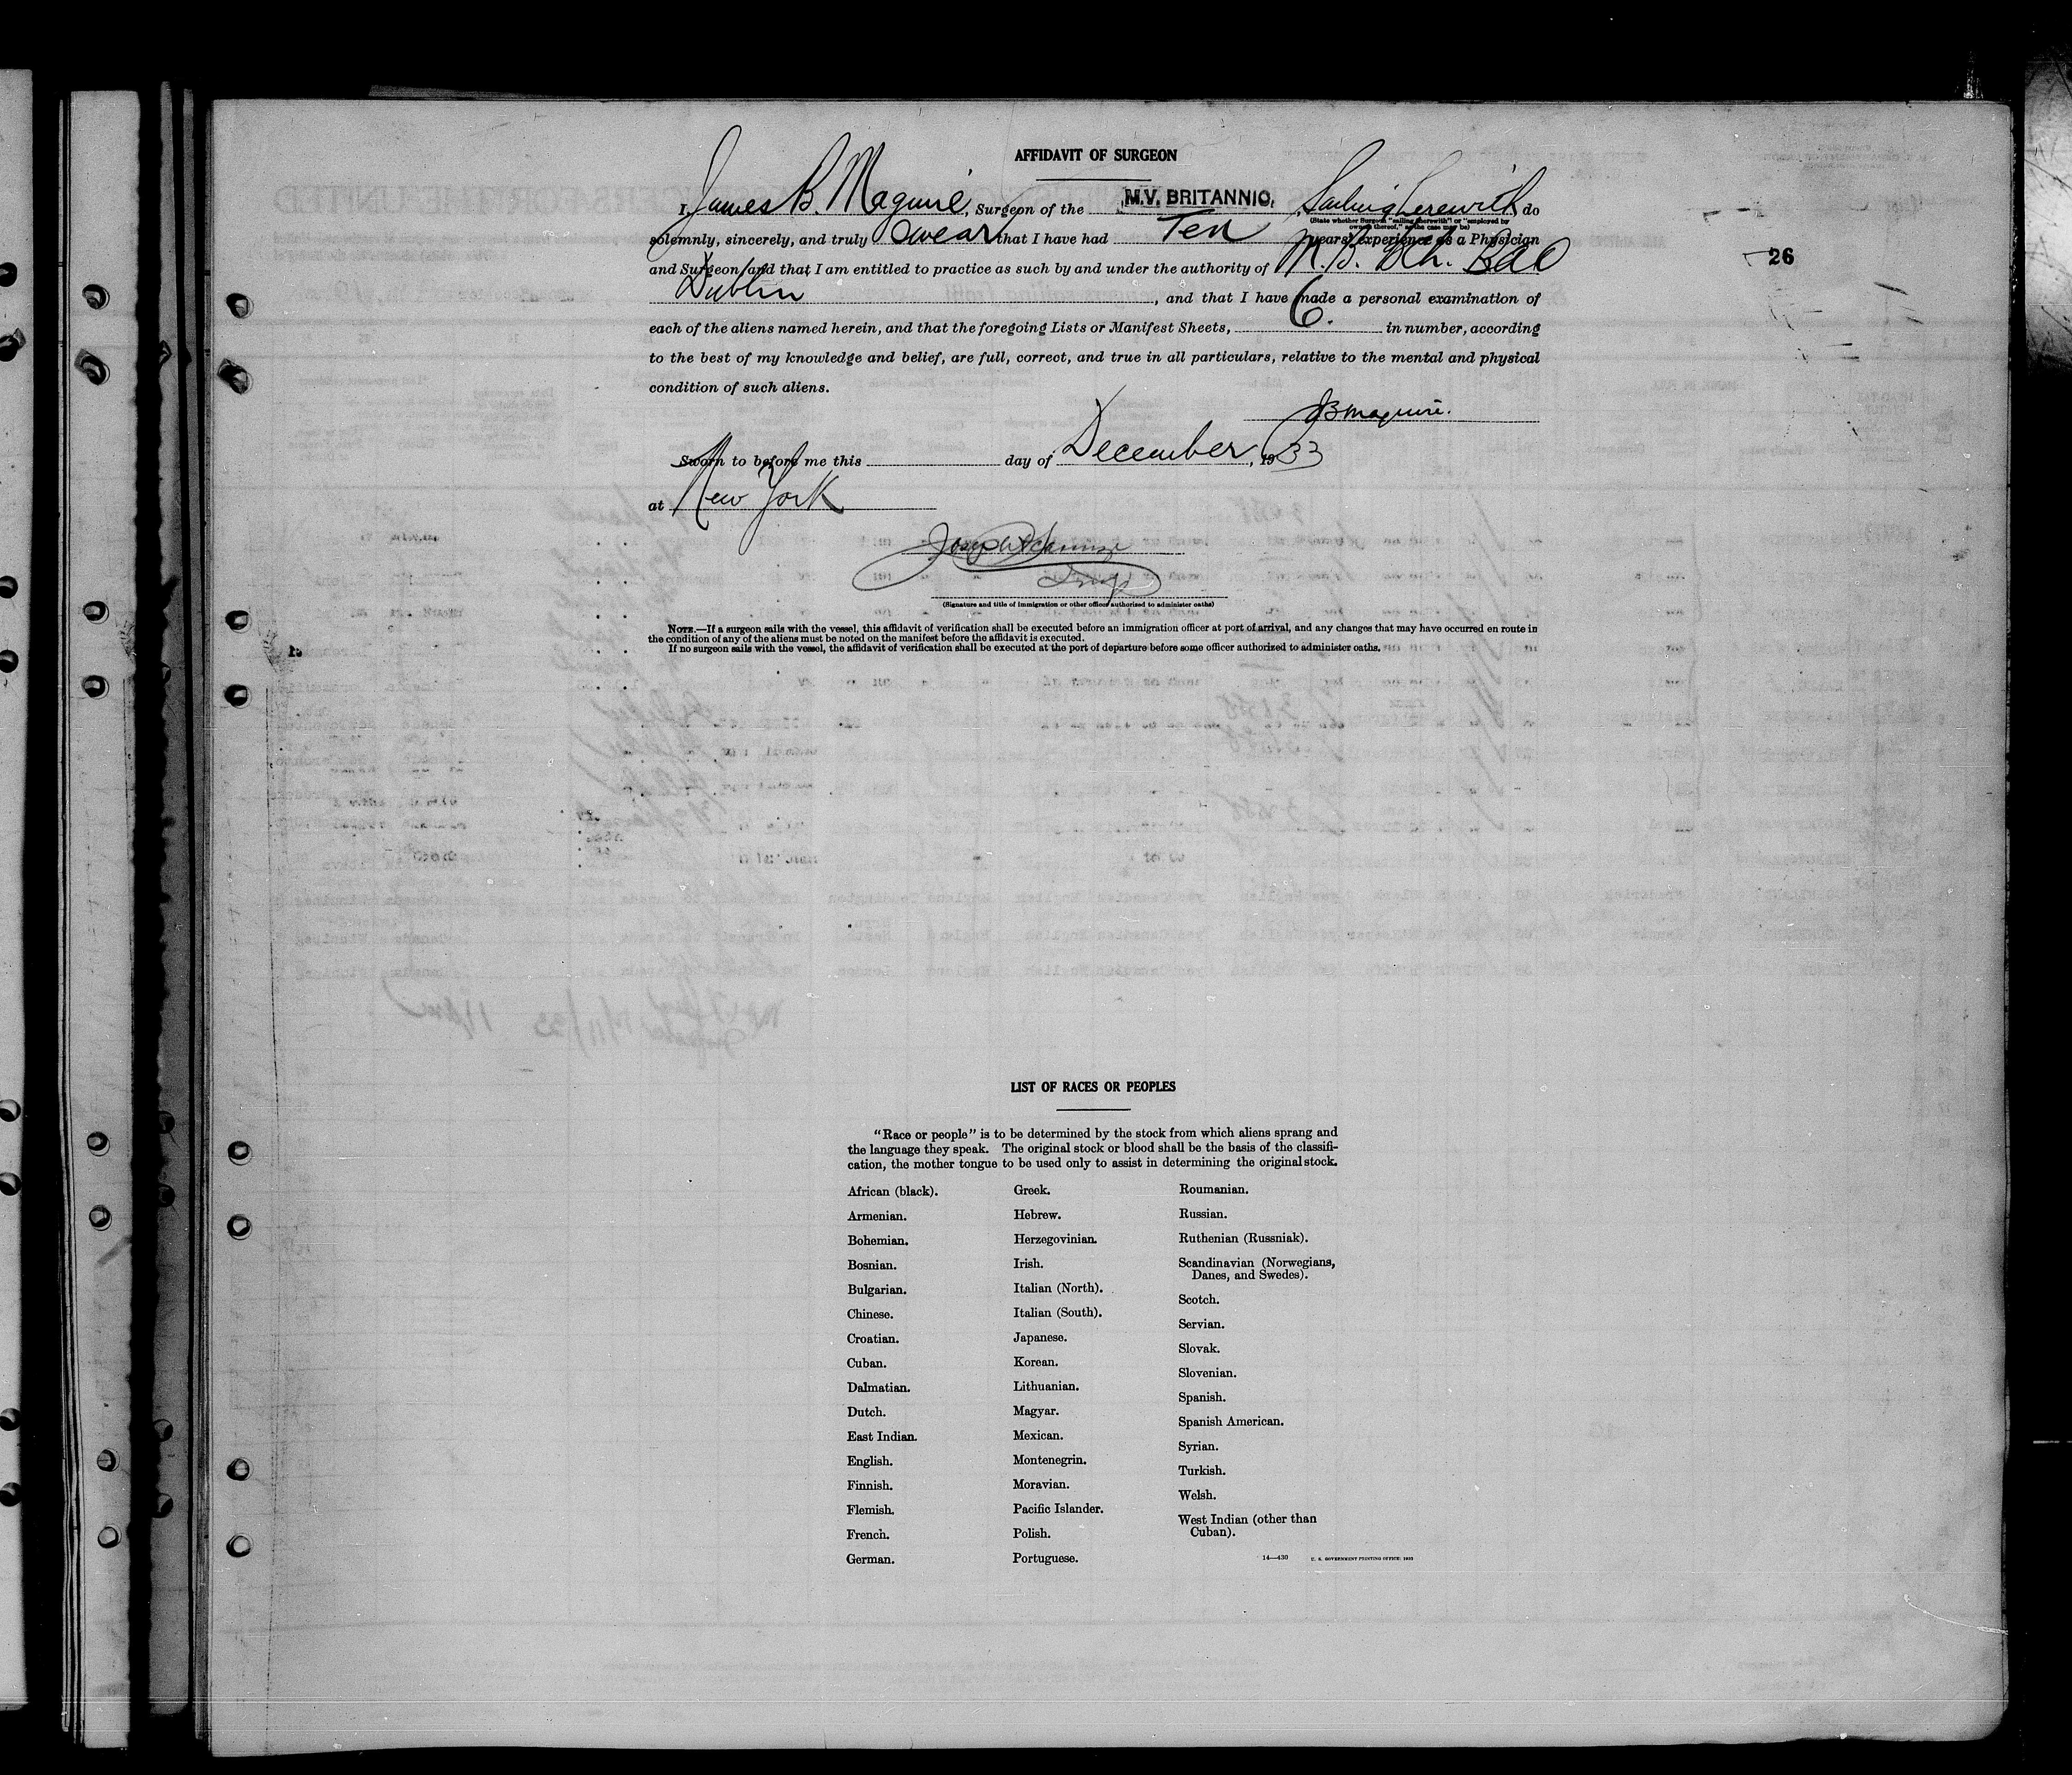 AFFIDAVIT OF SURGEON
I, James B. Maguire, Surgeon of the M.V. BRITANNIC, Sailing herewith, do
(State whether Surgeon "sailing therewith" or "employed by
owners thereof," as the case may be)
solemnly, sincerely, and truly swear that I have had Ten years' experience as a Physician
and Surgeon, and that I am entitled to practice as such by and under the authority of M.B. Bch. Bao
Dublin, and that I have made a personal examination of
each of the aliens named herein, and that the foregoing Lists or Manifest Sheets, 6. in number, according
to the best of my knowledge and belief, are full, correct, and true in all particulars, relative to the mental and physical
condition of such aliens.
JBMaguire.
Sworn to before me this day of December, 1933
at New York
(Signature and title of immigration or other officer authorized to administer oaths)
NOTE.—If a surgeon sails with the vessel, this affidavit of verification shall be executed before an immigration officer at port of arrival, and any changes that may have occurred en route in
the condition of any of the aliens must be noted on the manifest before the affidavit is executed.
If no surgeon sails with the vessel, the affidavit of verification shall be executed at the port of departure before some officer authorized to administer oaths.
26
LIST OF RACES OR PEOPLES
"Race or people" is to be determined by the stock from which aliens sprang and
the language they speak. The original stock or blood shall be the basis of the classifi-
cation, the mother tongue to be used only to assist in determining the original stock.
African (black).
Armenian.
Bohemian.
Bosnian.
Bulgarian.
Chinese.
Croatian.
Cuban.
Dalmatian.
Dutch.
East Indian.
English.
Finnish.
Flemish.
French.
German.
Greek.
Hebrew.
Herzegovinian.
Irish.
Italian (North).
Italian (South).
Japanese.
Korean.
Lithuanian.
Magyar.
Mexican.
Montenegrin.
Moravian.
Pacific Islander.
Polish.
Portuguese.
Roumanian.
Russian.
Ruthenian (Russniak).
Scandinavian (Norwegians,
Danes, and Swedes).
Scotch.
Servian.
Slovak.
Slovenian.
Spanish.
Spanish American.
Syrian.
Turkish.
Welsh.
West Indian (other than
Cuban).
14—430 U. S. GOVERNMENT PRINTING OFFICE: